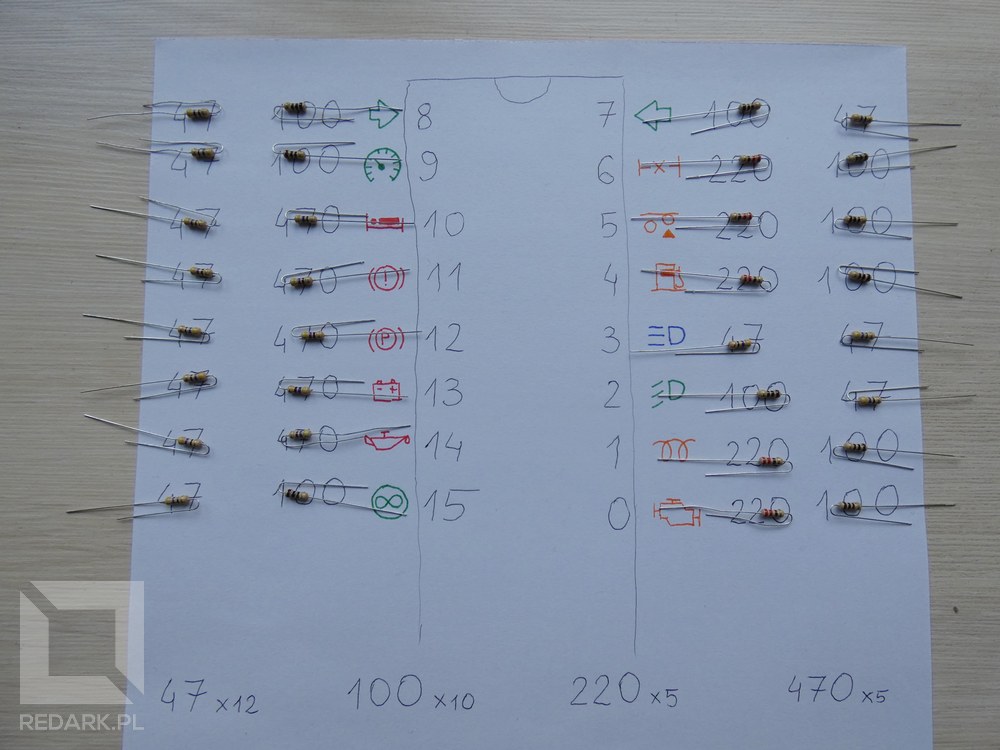 47 100 8 7 100 47
47 100 9 6 220 100
47 470 10 5 220 100
47 470 11 4 220 100
47 470 P 12 3 47 47
47 470 13 2 100 47
47 470 14 1 220 100
47 100 15 0 220 100
47 x12 100 x10 220 x5 470 x5
REDARK.PL